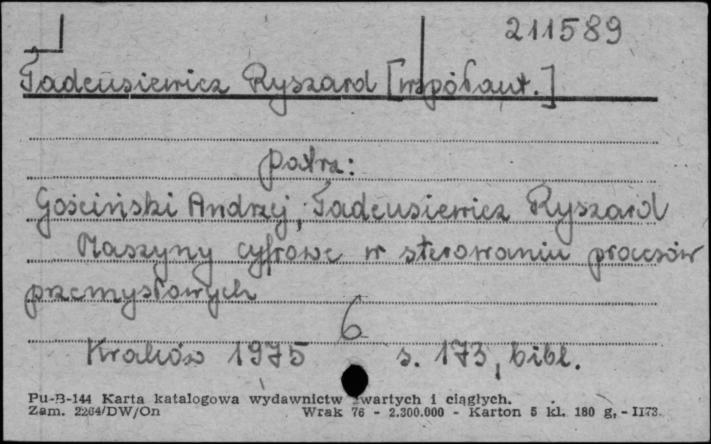 211589
Tadeusiewicz Ryszard [współaut.]
patrz:
Gościński Andrzej, Tadeusiewicz Ryszard
Maszyny cyfrowe w sterowaniu procesów
przemysłowych
6
Kraków 1975 s. 173, bibl.
Pu-B-144 Karta katalogowa wydawnictw zwartych i ciągłych.
Zam. 2264/DW/On Wrak 76 - 2.300.000 - Karton 5 kl. 180 g. - II73.